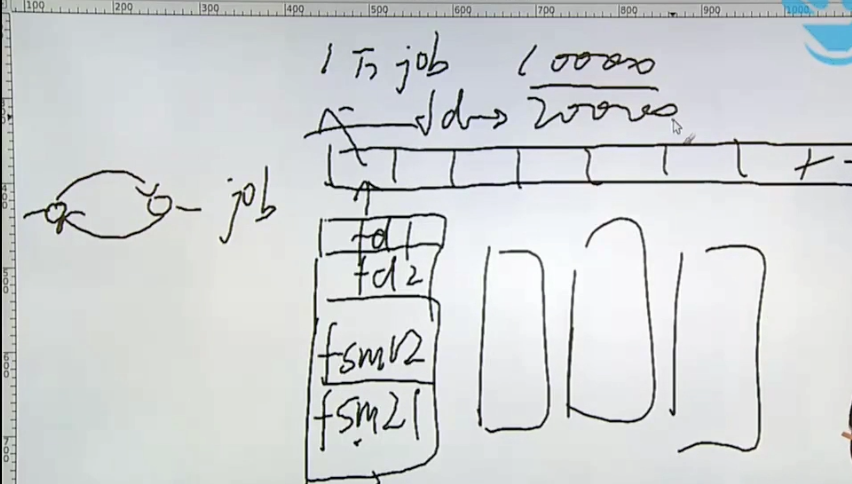 100 200 300 400 500 600 700 800 900 1000
job 10000
20000
job
fd1
fd2
fsm12
fsm21